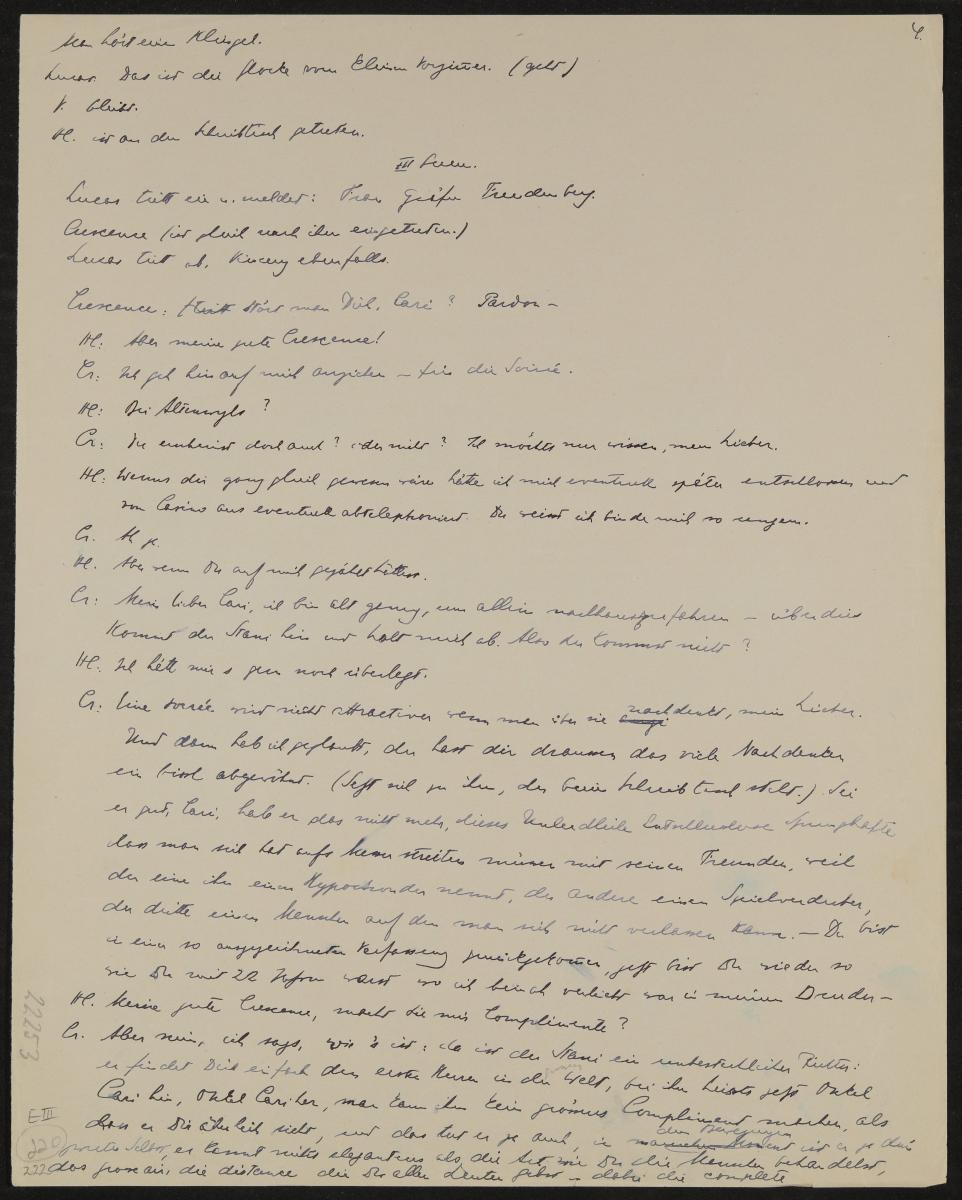 4.
Man hört eine Klingel.
Lucas. Das ist die Glocke vom kleinen Vorzimmer. (geht)
V. bleibt.
H. ist an den Schreibtisch getreten.
III Scene.
Lucas tritt ein u. meldet: Frau Gräfin Freudenberg.
Crescence (ist gleich nach ihm eingetreten.)
Lucas tritt ab, Vincenz ebenfalls.
Crescence: Stört man Dich, Cari? Pardon –
HC: Aber meine gute Crescence!
Cr: Ich geh hinauf mich anziehen – für die Soirée.
HC: Bei Altenwyls?
Cr: Du erscheinst doch auch? oder nicht? Ich möchte nur wissen, mein Lieber.
HC: Wenns dir ganz gleich gewesen wäre hätte ich mich eventuell später entschlossen und
vom Casino aus eventuell abtelephoniert. Du weisst ich binde mich so ungern.
Cr. Ah ja.
HC. Aber wenn Du auf mich gezählt hättest.
Cr: Mein lieber Cari, ich bin alt genug, um allein nachhauszufahren – überdies
kommt der Stani hin und holt mich ab. Also du kommst nicht?
HC. Ich hätt mir's gern noch überlegt.
Cr: Eine Soirée wird nicht attractiver wenn man über sie nachdenkt, mein Lieber.
Und dann hab ich geglaubt, du hast dir draussen das viele Nachdenken
ein bissl abgewöhnt. (Setzt sich zu ihm, der beim Schreibtisch steht.) Sei
er gut, Cari, hab er das nicht mehr, dieses Unleidliche Entschlusslose Sprunghafte
dass man sich hat aufs Messer streiten müssen mit seinen Freunden, weil
der eine ihn einen Hypochonder nennt, der andere einen Spielverderber,
der dritte einen Menschen auf den man sich nicht verlassen kann. – Du bist
in einer so ausgezeichneten Verfassung zurückgekommen, jetzt bist Du wieder so
wie Du mit 22 Jahren warst wo ich beinah verliebt war in meinen Bruder –
HC. Meine gute Crescence, machst Du mir Complimente?
Cr. Aber nein, ich sags, wie's ist: da ist der Stani ein unbestechlicher Richter:
er findet Dich einfach den ersten Herrn in der Welt, bei ihm heissts jetzt Onkel
Cari hin, Onkel Cari her, man kann ihm kein grösseres Compliment machen, als
dass er Dir ähnlich sieht, und das tut er ja auch, in den Bewegungen ist er ja dein
zweites Selbst, er kennt nichts eleganteres als die Art, wie Du die Menschen behandelst,
das grosse air, die distance die Du allen Leuten gibst – dabei die complete
22253
E III
220
222